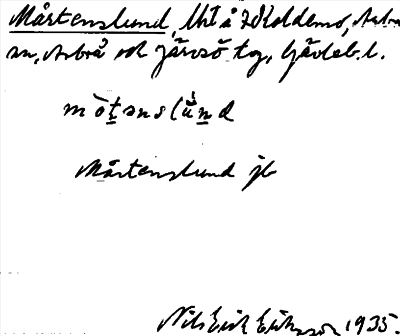 Mårtenslund, Uhl å Kloldemo, Arbrå
sn, Arbrå och Järvsö tg, Gävleb. l.
mò̀tənslúnd
Mårtenslund jb
Nils Erik Eriksson 1935.